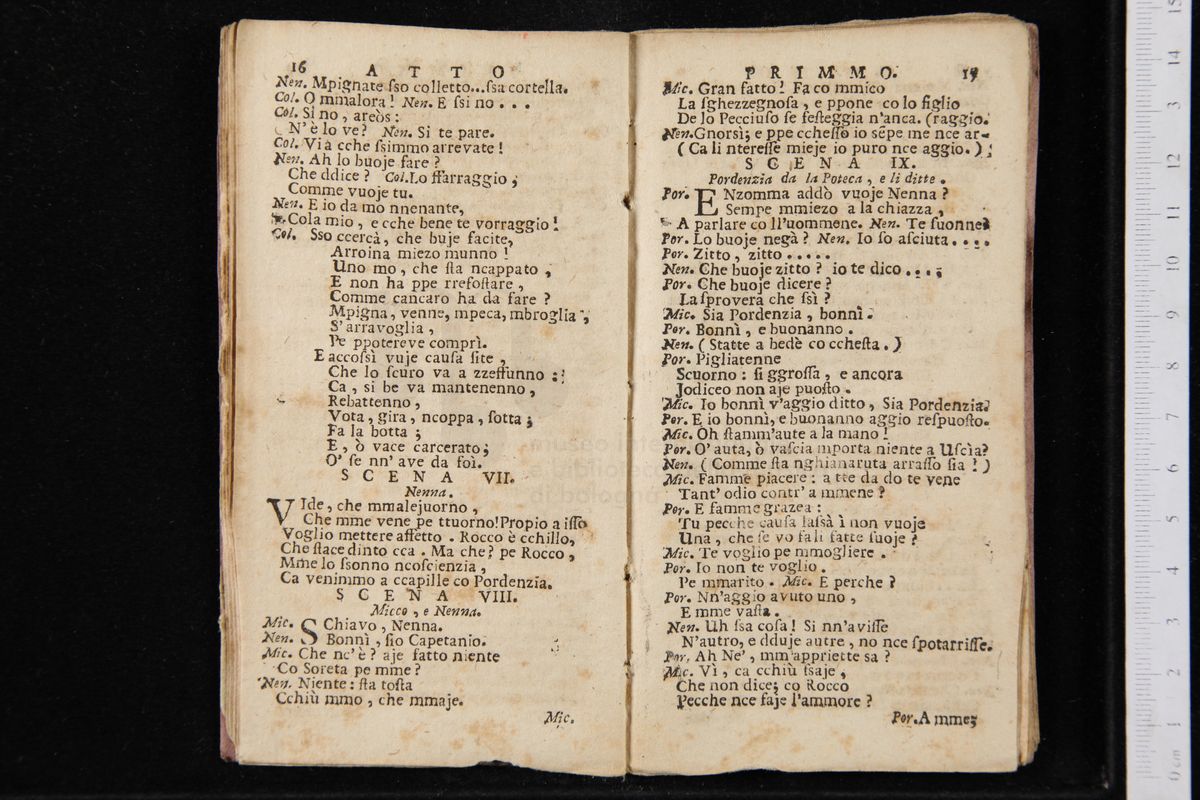 16 A T T O
Nen. Mpignate ſso colletto...ſsa cortella.
Col. O mmalora! Nen. E ſsi no . . .
Col. Sì no, areòs:
N'è lo ve? Nen. Si te pare.
Col. Via cche ſsimmo arrevate!
Nen. Ah lo buoje fare?
Che ddice? Col. Lo ffarraggio;
Comme vuoje tu.
Nen. E io da mo nnenante,
Cola mio, e cche bene te vorraggio!
Col. Sso ccercà, che buje facite,
Arroina miezo munno!
Uno mo, che ſta ncappato,
E non ha ppe rrefoſtare,
Comme cancaro ha da fare?
Mpigna, venne, mpeca, mbroglia,
S'arravoglia,
Pe ppotereve comprì.
E accoſsì vuje cauſa ſite,
Che lo ſcuro va a zzeffunno:
Ca, si be va mantenenno,
Rebattenno,
Vota, gira, ncoppa, ſotta;
Fa la botta;
E, ò vace carcerato;
O' ſe nn'ave da foì.
S C E N A VII.
Nenna.
VIde, che mmalejuorno,
Che mme vene pe ttuorno! Propio a iſſo
Voglio mettere affetto. Rocco è cchillo,
Che ſtace dinto cca. Ma che? pe Rocco,
Mme lo ſsonno ncoſcienzia,
Ca venimmo a ccapille co Pordenzia.
S C E N A VIII.
Micco, e Nenna.
Mic. SChiavo, Nenna.
Nen. Bonnì, ſio Capetanio.
Mic. Che nc'è? aje fatto niente
Co Soreta pe mme?
Nen. Niente: ſta toſta
Cchiù mmo, che mmaje.
Mic.
P R I M M O. 17
Mic. Gran fatto! Fa co mmico
La ſghezzegnoſa, e ppone co lo figlio
De lo Pecciuſo ſe feſteggia n'anca. (raggio.
Nen. Gnorsì; e ppe ccheſſo io sẽpe me nce ar-
(Ca li ntereſſe mieje io puro nce aggio.);
S C E N A IX.
Pordenzia da la Poteca, e li ditte.
Por. ENzomma addò vuoje Nenna?
Sempe mmiezo a la chiazza,
A parlare co ll'uommene. Nen. Te ſuonne.
Por. Lo buoje negà? Nen. Io ſo aſciuta....
Por. Zitto, zitto.....
Nen. Che buoje zitto? io te dico....
Por. Che buoje dicere?
La ſprovera che ſsì?
Mic. Sia Pordenzia, bonnì.
Por. Bonnì, e buonanno.
Nen. (Statte a bedè co ccheſta.)
Por. Pigliatenne
Scuorno: ſi ggroſſa, e ancora
Jodiceo non aje puoſto.
Mic. Io bonnì v'aggio ditto, Sia Pordenzia.
Por. E io bonnì, e buonanno aggio reſpuoſto.
Mic. Oh ſtamm'aute a la mano!
Por. O' auta, ò vaſcia mporta niente a Uſcìa?
Nen. (Comme ſta nghianaruta arraſſo ſia!)
Mic. Famme piacere: a tte da do te vene
Tant' odio contr' a mmene?
Por. E famme grazea:
Tu pecche cauſa laſsà ì non vuoje
Una, che ſe vo fa li fatte ſuoje?
Mic. Te voglio pe mmogliere.
Por. Io non te voglio.
Pe mmarito. Mic. E perche?
Por. Nn'aggio avuto uno,
E mme vaſta.
Nen. Uh ſsa coſa! Si nn'aviſſe
N'autro, e dduje autre, no nce ſpotarriſſe.
Por. Ah Ne', mm'appriette sa?
Mic. Vì, ca cchiù ſsaje,
Che non dice; co Rocco
Pecche nce faje l'ammore?
Por. A mme;